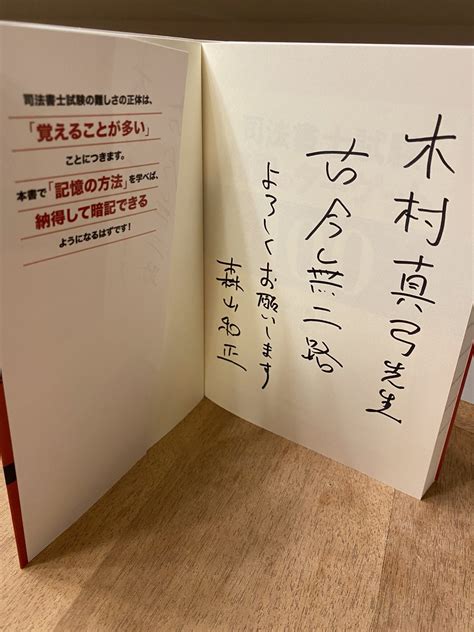 司法書士試験の難しさの正体は、
「覚えることが多い」
ことにつきます。
本書で「記憶の方法」を学べば、
納得して暗記できる
ようになるはずです!
木村真弓先生
古今無二路
よろしくお願いします
森山和正